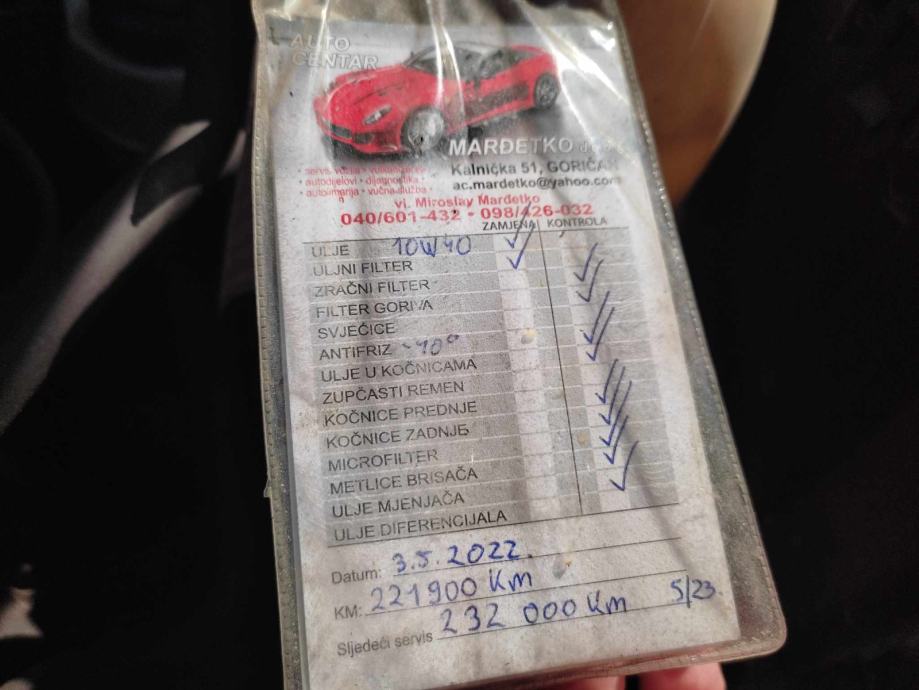 AUTO
CENTAR
MARĐETKO
Kalnička 51, GORIČAN
• autodijelovi • dijagnostika •
ac.mardetko@yahoo.com
vl. Miroslav Marđetko
040/601-432 • 098/426-032
ZAMJENA KONTROLA
ULJE 10W40
ULJNI FILTER
ZRAČNI FILTER
FILTER GORIVA
SVJEČICE
ANTIFRIZ -40°
ULJE U KOČNICAMA
ZUPČASTI REMEN
KOČNICE PREDNJE
KOČNICE ZADNJE
MICROFILTER
METLICE BRISAČA
ULJE MJENJAČA
ULJE DIFERENCIJALA
Datum: 3.5.2022.
KM: 221900 Km
Sljedeći servis 232 000 Km 5/23.